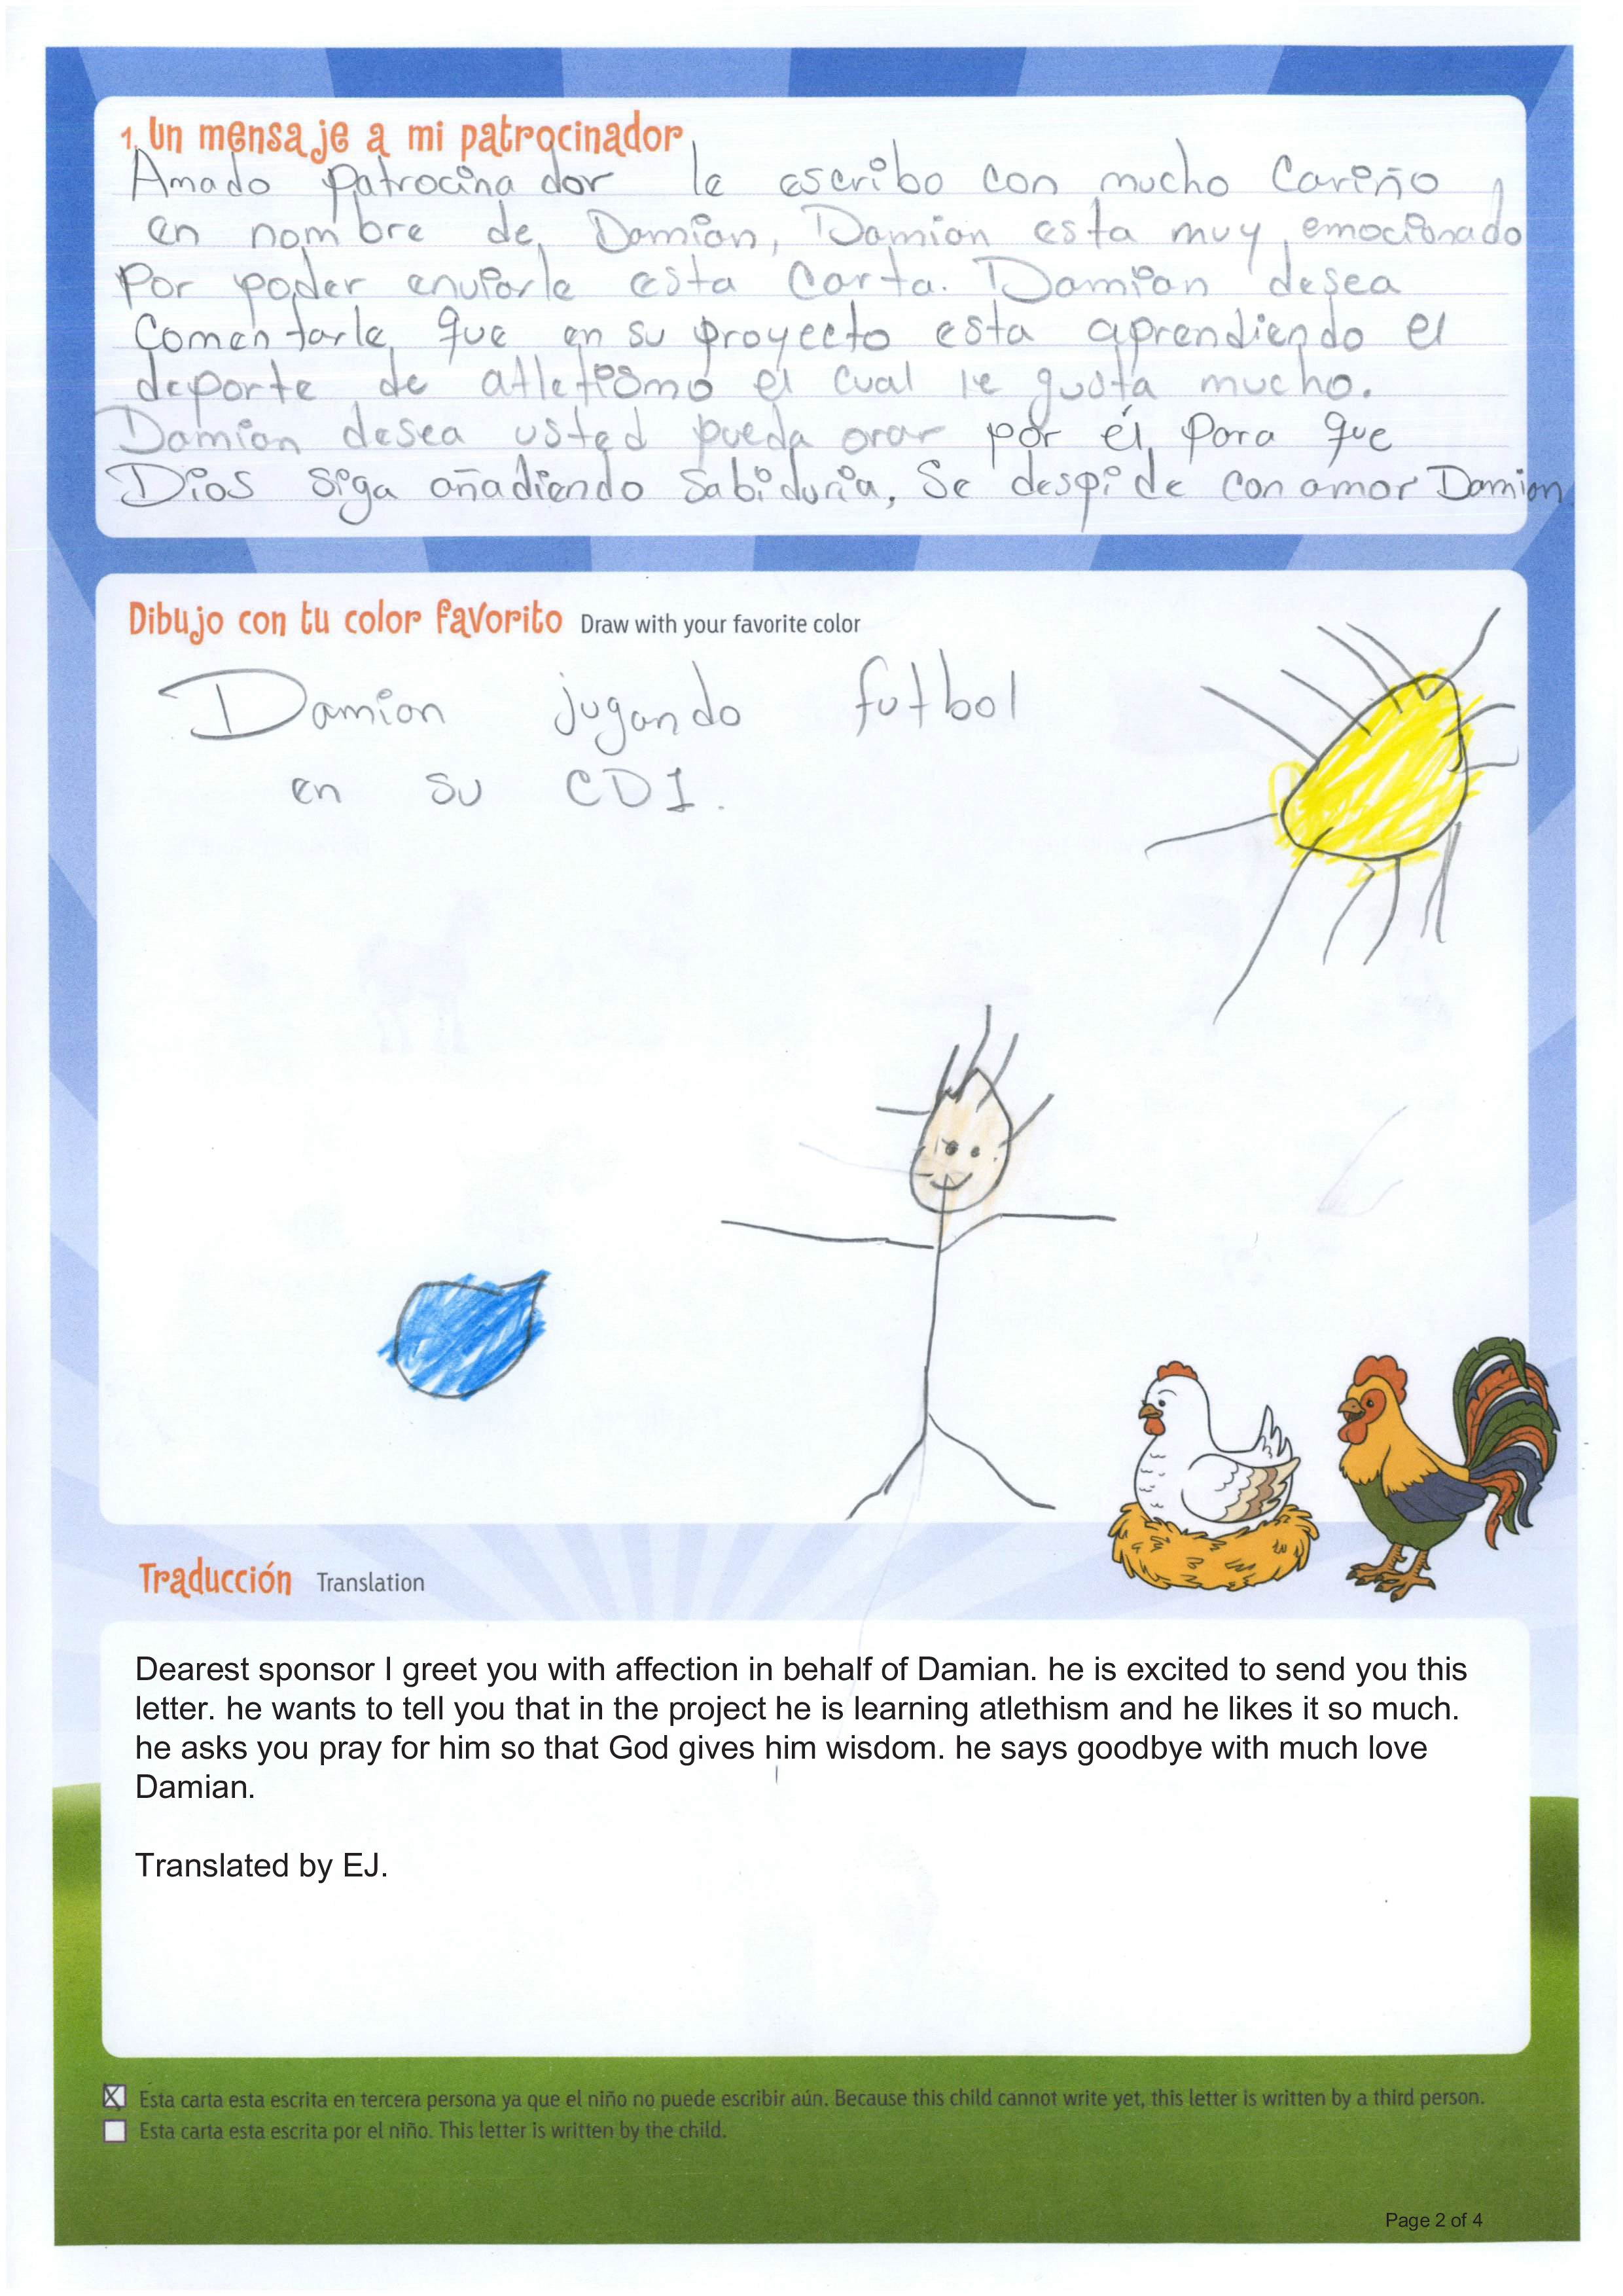 1. Un mensaje a mi patrocinador
Amado patrocinador le escribo con mucho cariño
en nombre de Damian, Damian esta muy emocionado
por poder enviarle esta carta. Damian desea
comentarle que en su proyecto esta aprendiendo el
deporte de atletismo el cual le gusta mucho.
Damian desea usted pueda orar por él para que
Dios siga añadiendo sabiduria, Se despide con amor Damian
Dibujo con tu color favorito Draw with your favorite color
Damian jugando futbol
en su CDI.
Traducción Translation
Dearest sponsor I greet you with affection in behalf of Damian. he is excited to send you this
letter. he wants to tell you that in the project he is learning atlethism and he likes it so much.
he asks you pray for him so that God gives him wisdom. he says goodbye with much love
Damian.
Translated by EJ.
X Esta carta esta escrita en tercera persona ya que el niño no puede escribir aún. Because this child cannot write yet, this letter is written by a third person.
Esta carta esta escrita por el niño. This letter is written by the child.
Page 2 of 4